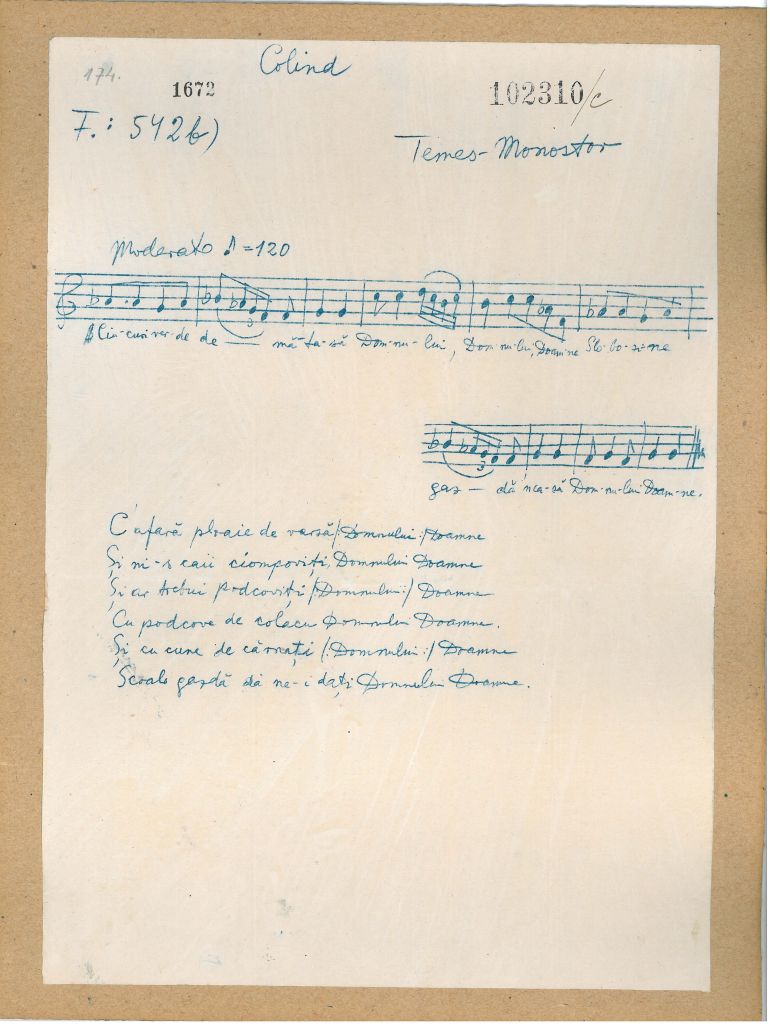 Colind
174.
1672
102310/c
F.: 542b)
Temes-Monostor
Moderato ♪=120
Ciu-curi ver-de de — mă-ta-să Dom-nu-lui, Dom-nu-lui, Doamne Slo-bo-zi-ne
3
gaz — dă 'n ca-să Dom-nu-lui Doam-ne.
3
C'afară ploaie de varsă /:Domnului:/ Doamne
Și ni-s caii ciompoviți, Domnului Doamne
Și ar trebui podcoviți /:Domnului:/ Doamne
Cu podcove de colacu Domnului Doamne.
Și cu cune de cârnați /:Domnului:/ Doamne
Scoale gazdă să ne-i dați Domnului Doamne.